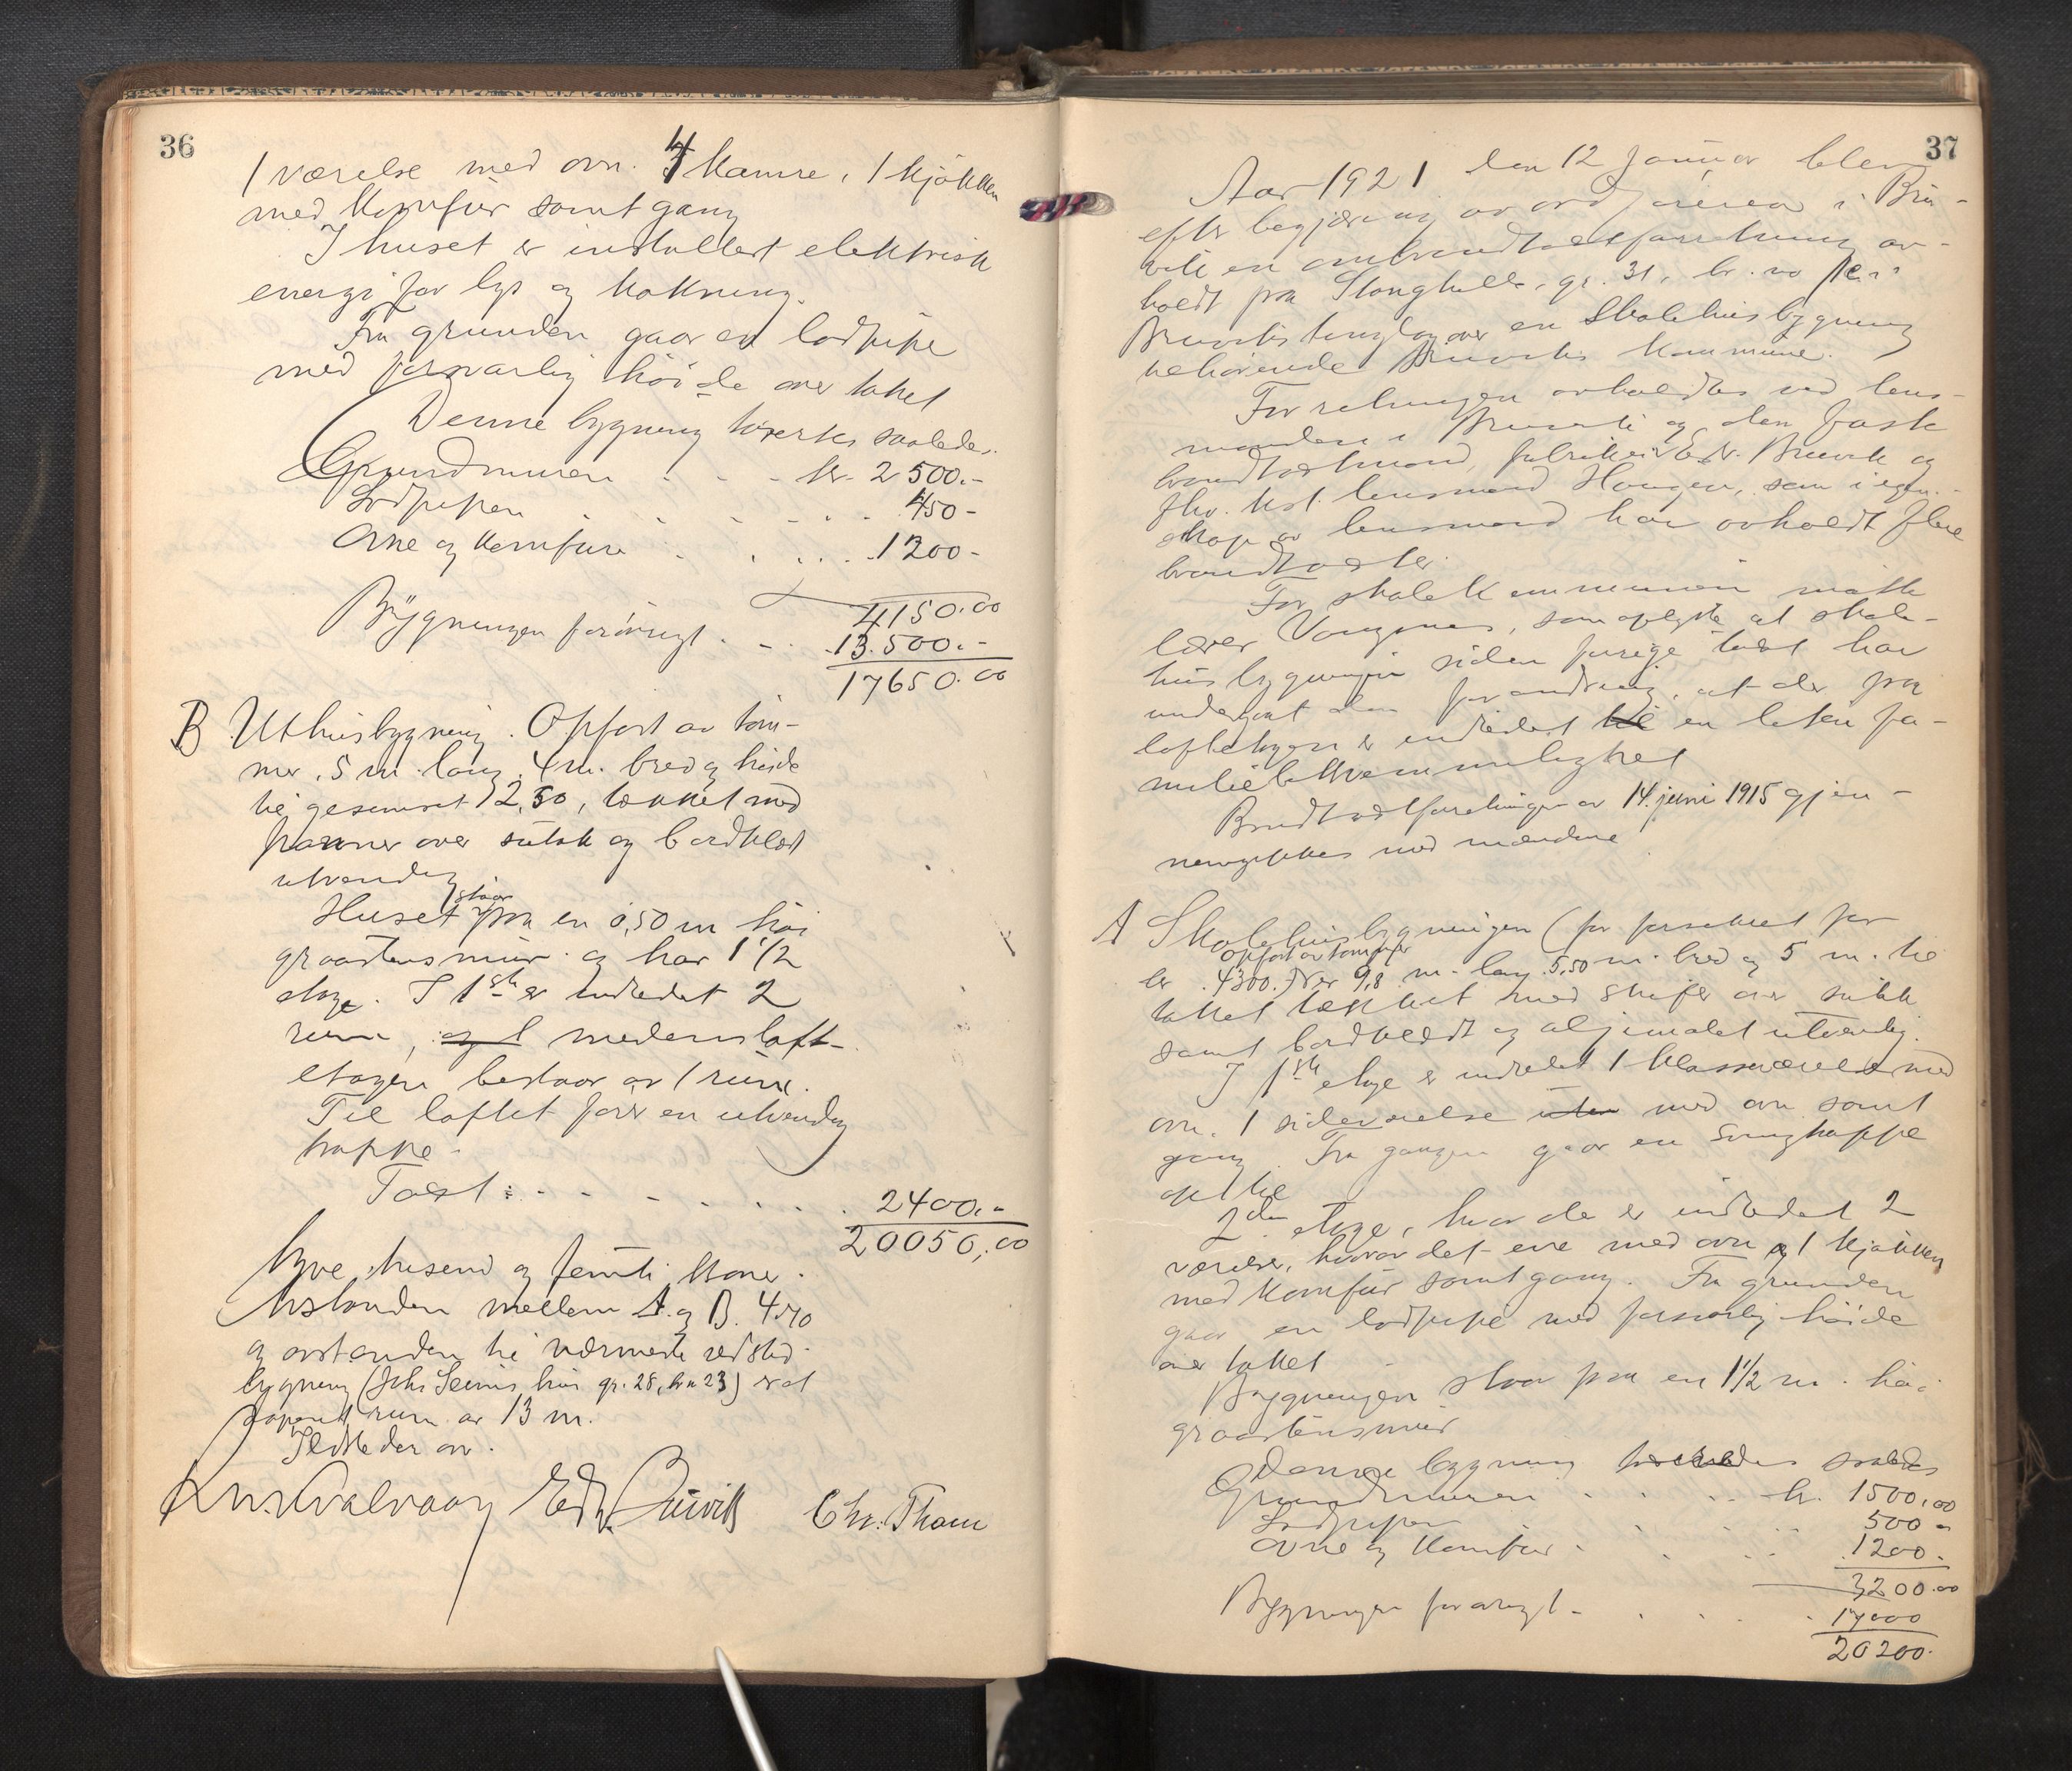 36
1 værelse med ovn. 4 kamre, 1 kjökken
med komfür samt gang
I huset er installert elektrisk
energi for lys og kokning.
Fra grunden gaar en lodpipe
med forsvarlig höide over taket
Denne bygning taxertes saaledes.
Grundmuren . . . kr. 2500.-
Lodpipen . . . . . . 450-
Ovne og komfure . . . . . 1200-
4150.00
Bygningen forövrigt . - - 13.500.-
17650.00
B Uthusbygning. Opfört av töm-
mer, 5 m. lang, 4 m. bred og höide
til gesemset 2,50, tækket med
panner over sutak og bordklædt
utvendig
Huset staar paa en 0,50 m höi
graastensmur og har 1 1/2
etage. I 1ste er indredet 2
rum, og 1 medens loft-
etagen bestaar av 1 rum.
Til loftet förer en utvendig
trappe.
Taxt: . - - - . . . . 2400.-
20050,00
Tyve tusend og femti kroner.
Avstanden mellem A. og B. 4.70
og avstanden til nærmeste ildsted-
bygning (Johs Seims hus gr. 28, br.n 23) er et
aapent rum av 13 m.
Ildsteder ovn.
Edv. Bruvik Chr. Thom
37
Aar 1921 den 12 januar blev
efter begjæring av ordföreren i Bru-
vik en ombrandtaxtforretning av-
holdt paa Stanghelle, gr. 31, br. no i
Bruviks tinglag over en Skolehusbygning
tilhörende Bruviks kommune.
Forretningen avholdtes ved lens-
manden i Bruvik og den faste
brandtaxtmand, fabrikeier Edv. Bruvik og
fhv. kst. lensmand Haugen, som i egen-
skap av lensmand har avholdt flere
brandtaxter.
For skolekommunen mötte
lærer Vangsnes, som oplyste at skole-
husbygningen siden forrige taxt har
undergaat den forandring, at der paa
loftetagen er indredet til en liten fa-
miliebekvemmelighet
Brandtaxtforretningen av 14. juni 1915 gjen-
nemgikkes med mændene
A Skolehusbygningen (för forsikret for
opfört av tömmer
kr. 4300.) er 9,8 m. lang 5,50 m. bred og 5 m. til
taket tækket med skifer over sutak
samt bordklædt og oljemalet utvendig.
I 1ste etage er indredet 1 klasseværelse med
ovn. 1 sideværelse uten med ovn samt
gang. Fra gangen gaar en svingtrappe
op til
2den etage, hvor der er indredet 2
værelser, hvorav det ene med ovn og 1 kjökken
med komfür samt gang. Fra grunden
gaar en lodpipe med forsvarlig höide
over taket
Bygningen staar paa en 1 1/2 m. höi
graastensmur
Denne bygning taxertes saaledes
Grundmuren . . . . kr. 1500,00
Lodpipen . . . . 500 -
Ovne og komfür . . . . 1200.
3200.00
Bygningen forövrigt - . . . . 17000
20200.